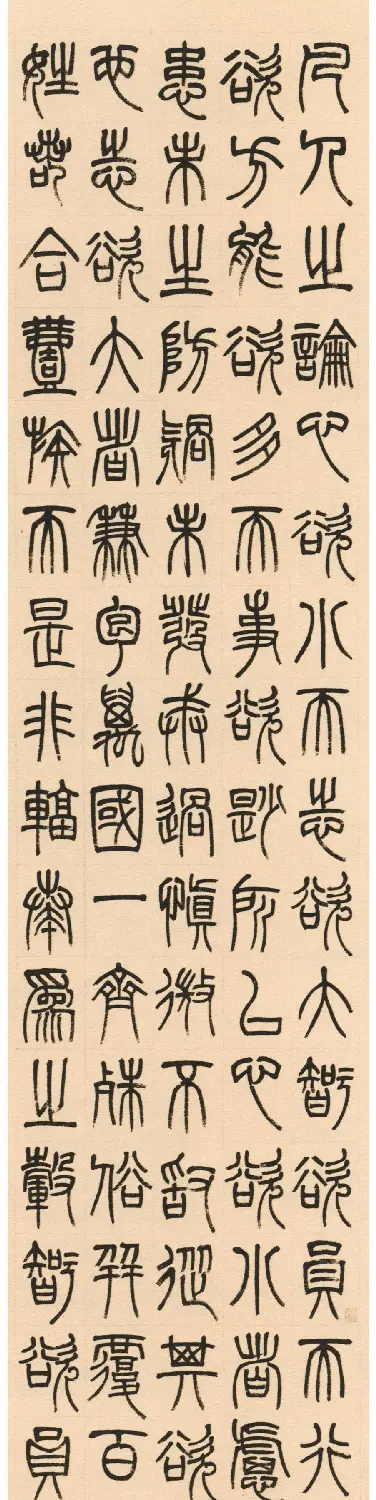 凡人之論心欲小而志欲大智欲員而行
欲方能欲多而事欲尟所以心欲小者慮
患未生防禍未發戒過慎微不敢從其欲
也志欲大者兼包萬國一齊殊俗并覆百
姓若合族而是非輻奏爲之轂智欲員